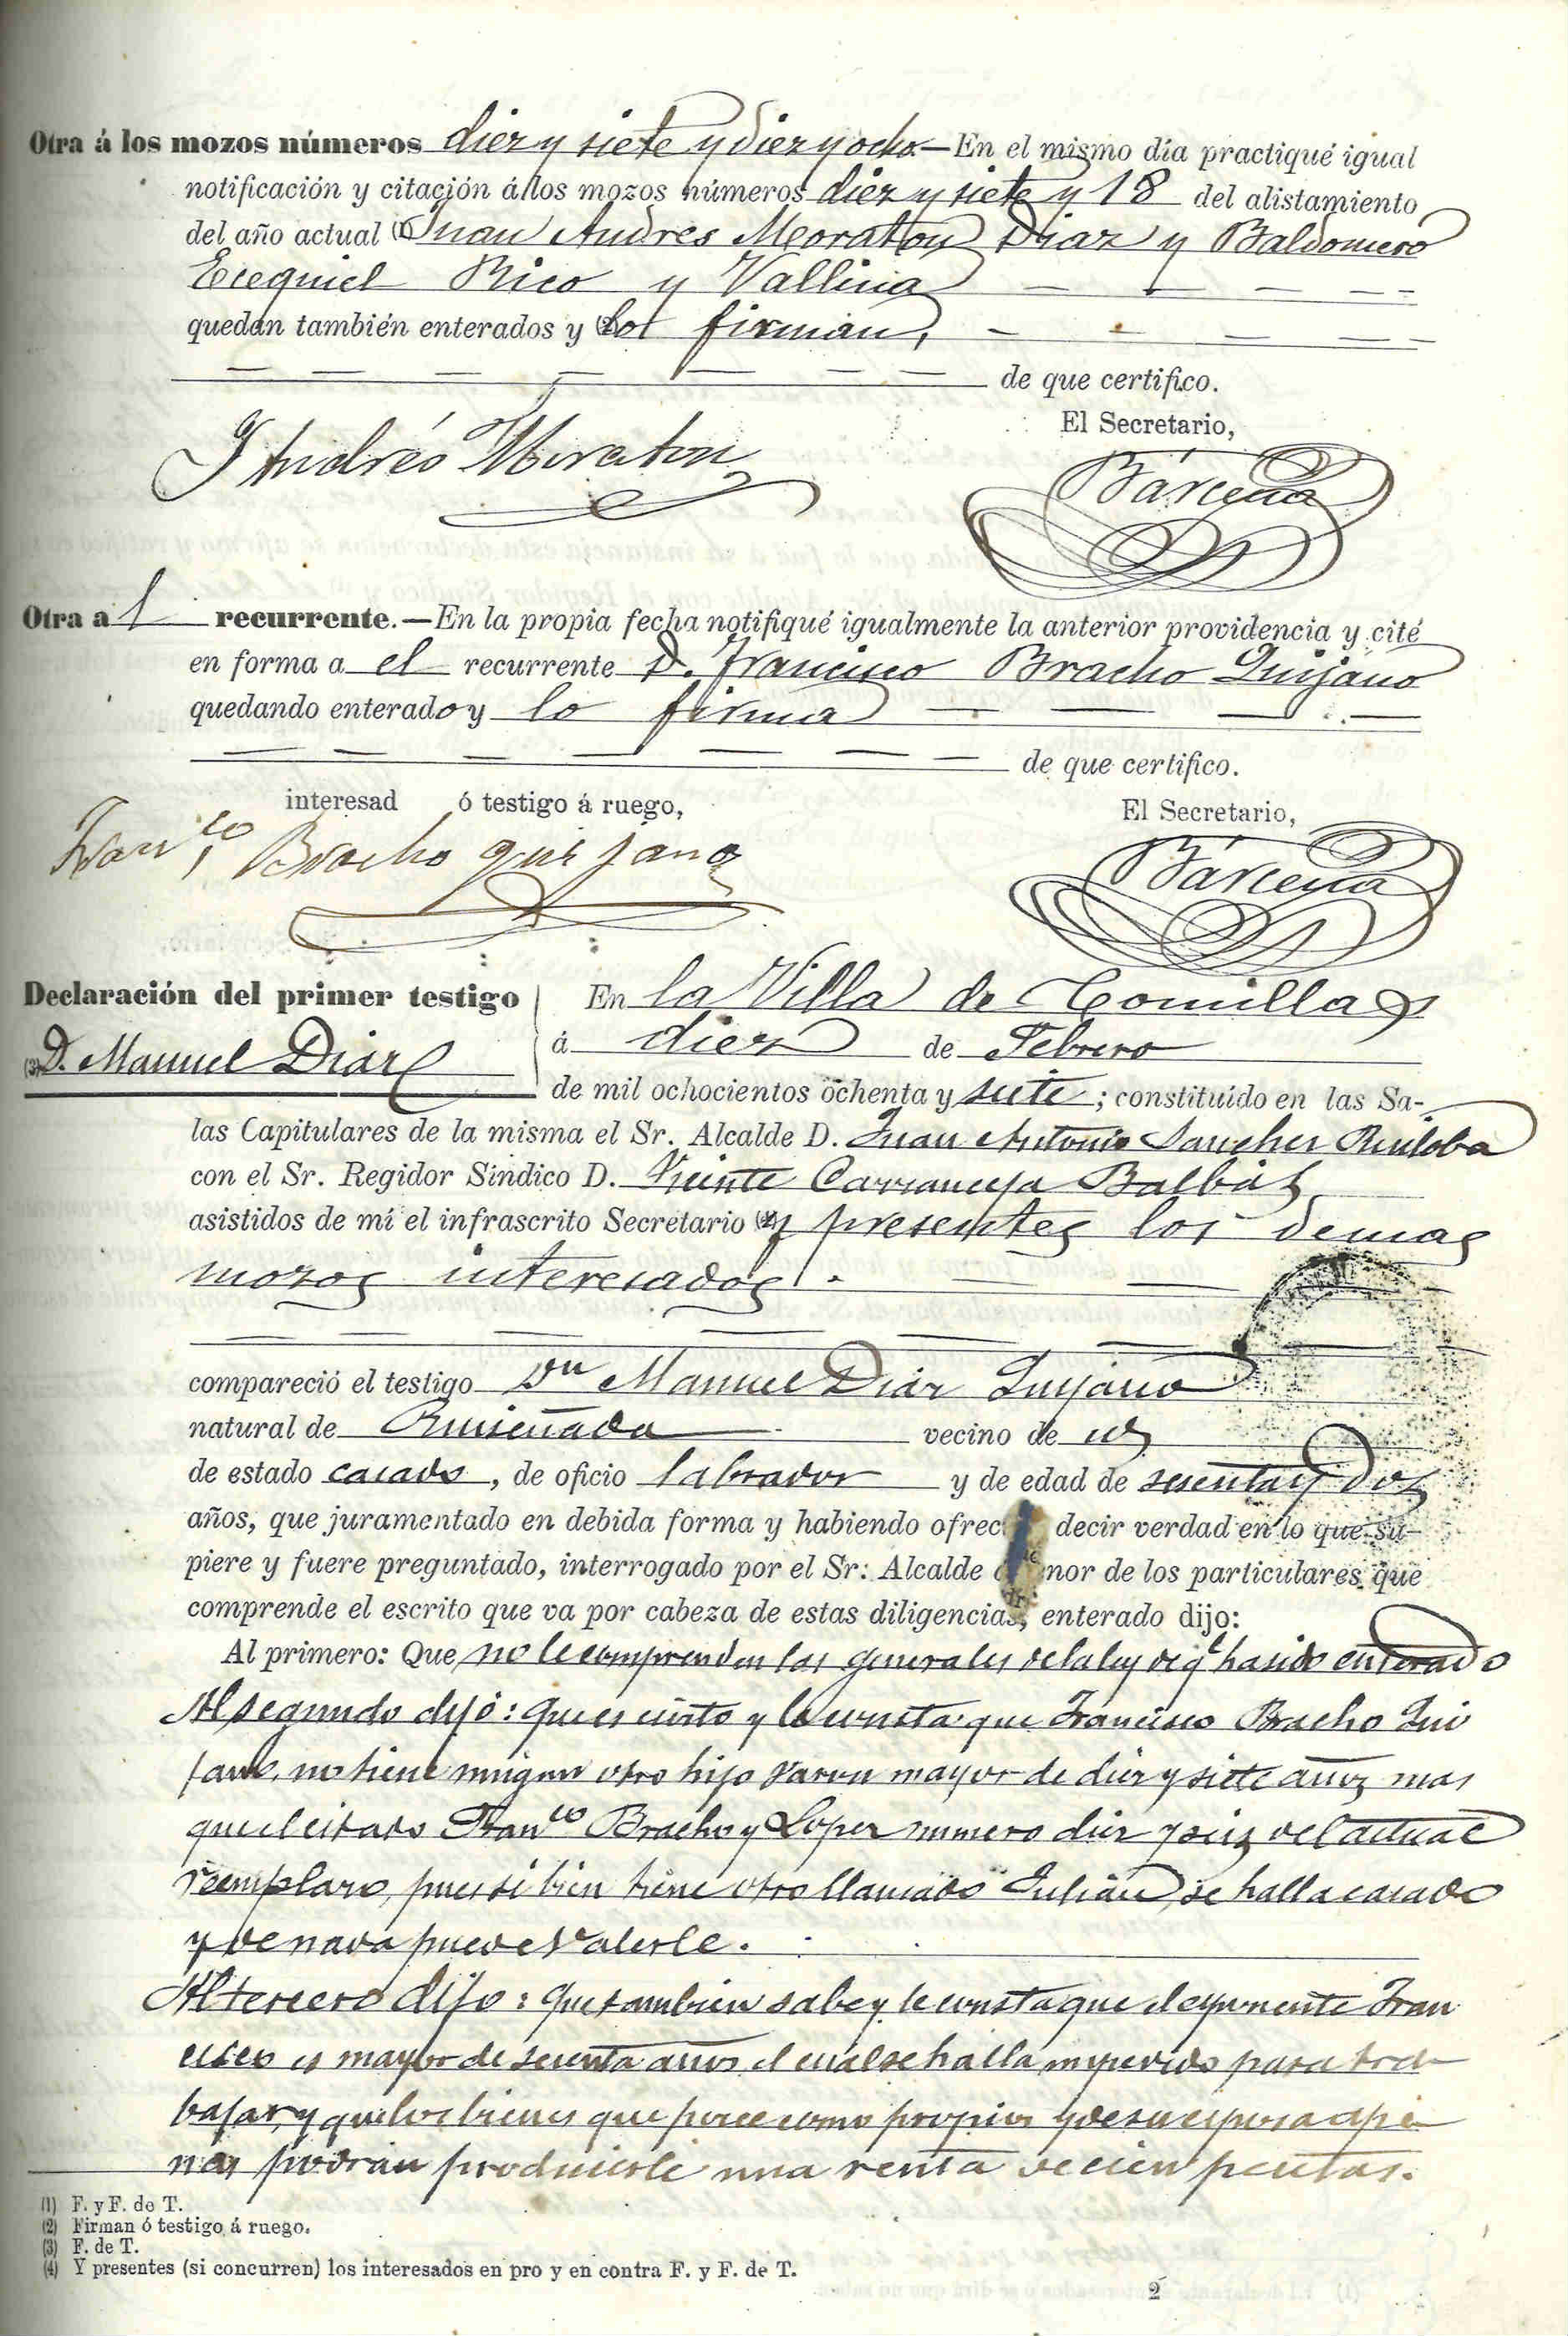 Otra á los mozos números diez y siete y diez y ocho.—En el mismo día practiqué igual
notificación y citación á los mozos números diez y siete y 18 del alistamiento
del año actual (1) Juan Andres Moraton Diaz y Baldomero
Ecequiel Rico y Vallina
quedan también enterados y (2) lo firman,
de que certifico.
El Secretario,
J Andrés Moraton
Bárcena
Otra a l recurrente.—En la propia fecha notifiqué igualmente la anterior providencia y cité
en forma a el recurrente D. Francisco Bracho Quijano
quedando enterado y lo firma
de que certifico.
interesad ó testigo á ruego,
El Secretario,
Franco Bracho quijano
Bárcena
Declaración del primer testigo
(3) D. Manuel Diaz
En la Villa de Comillas
á diez de Febrero
de mil ochocientos ochenta y siete; constituído en las Sa-
las Capitulares de la misma el Sr. Alcalde D. Juan Antonio Sanchez Ruiloba
con el Sr. Regidor Síndico D. Vicente Carranceja Balbás
asistidos de mí el infrascrito Secretario (4) y presentes los demas
mozos interesados.
compareció el testigo Dn Manuel Diaz Quijano
natural de Ruiseñada vecino de id
de estado casado, de oficio labrador y de edad de sesenta y dos
años, que juramentado en debida forma y habiendo ofrec decir verdad en lo que su-
piere y fuere preguntado, interrogado por el Sr. Alcalde nor de los particulares que
comprende el escrito que va por cabeza de estas diligencias, enterado dijo:
Al primero: Que no le comprenden las generales de la ley de q.e ha sido enterado
Al segundo dijo: que es cierto y le consta que Francisco Bracho Qui
jano, no tiene ningun otro hijo varon mayor de diez y siete años mas
que el citado Franco Bracho y Lopez numero diez y seis del actual
reemplazo, pues si bien tiene otro llamado Julián, se halla casado
y de nada puede valerle.
Al tercero dijo: que tambien sabe y le consta que el esponente Fran
cisco es mayor de sesenta años el cual se halla impedido para tra
bajar, y que los bienes que posee como propios y de su esposa ape
nas podrán producirle una renta de cien pesetas.
(1) F. y F. de T.
(2) Firman ó testigo á ruego.
(3) F. de T.
(4) Y presentes (si concurren) los interesados en pro y en contra F. y F. de T.
2